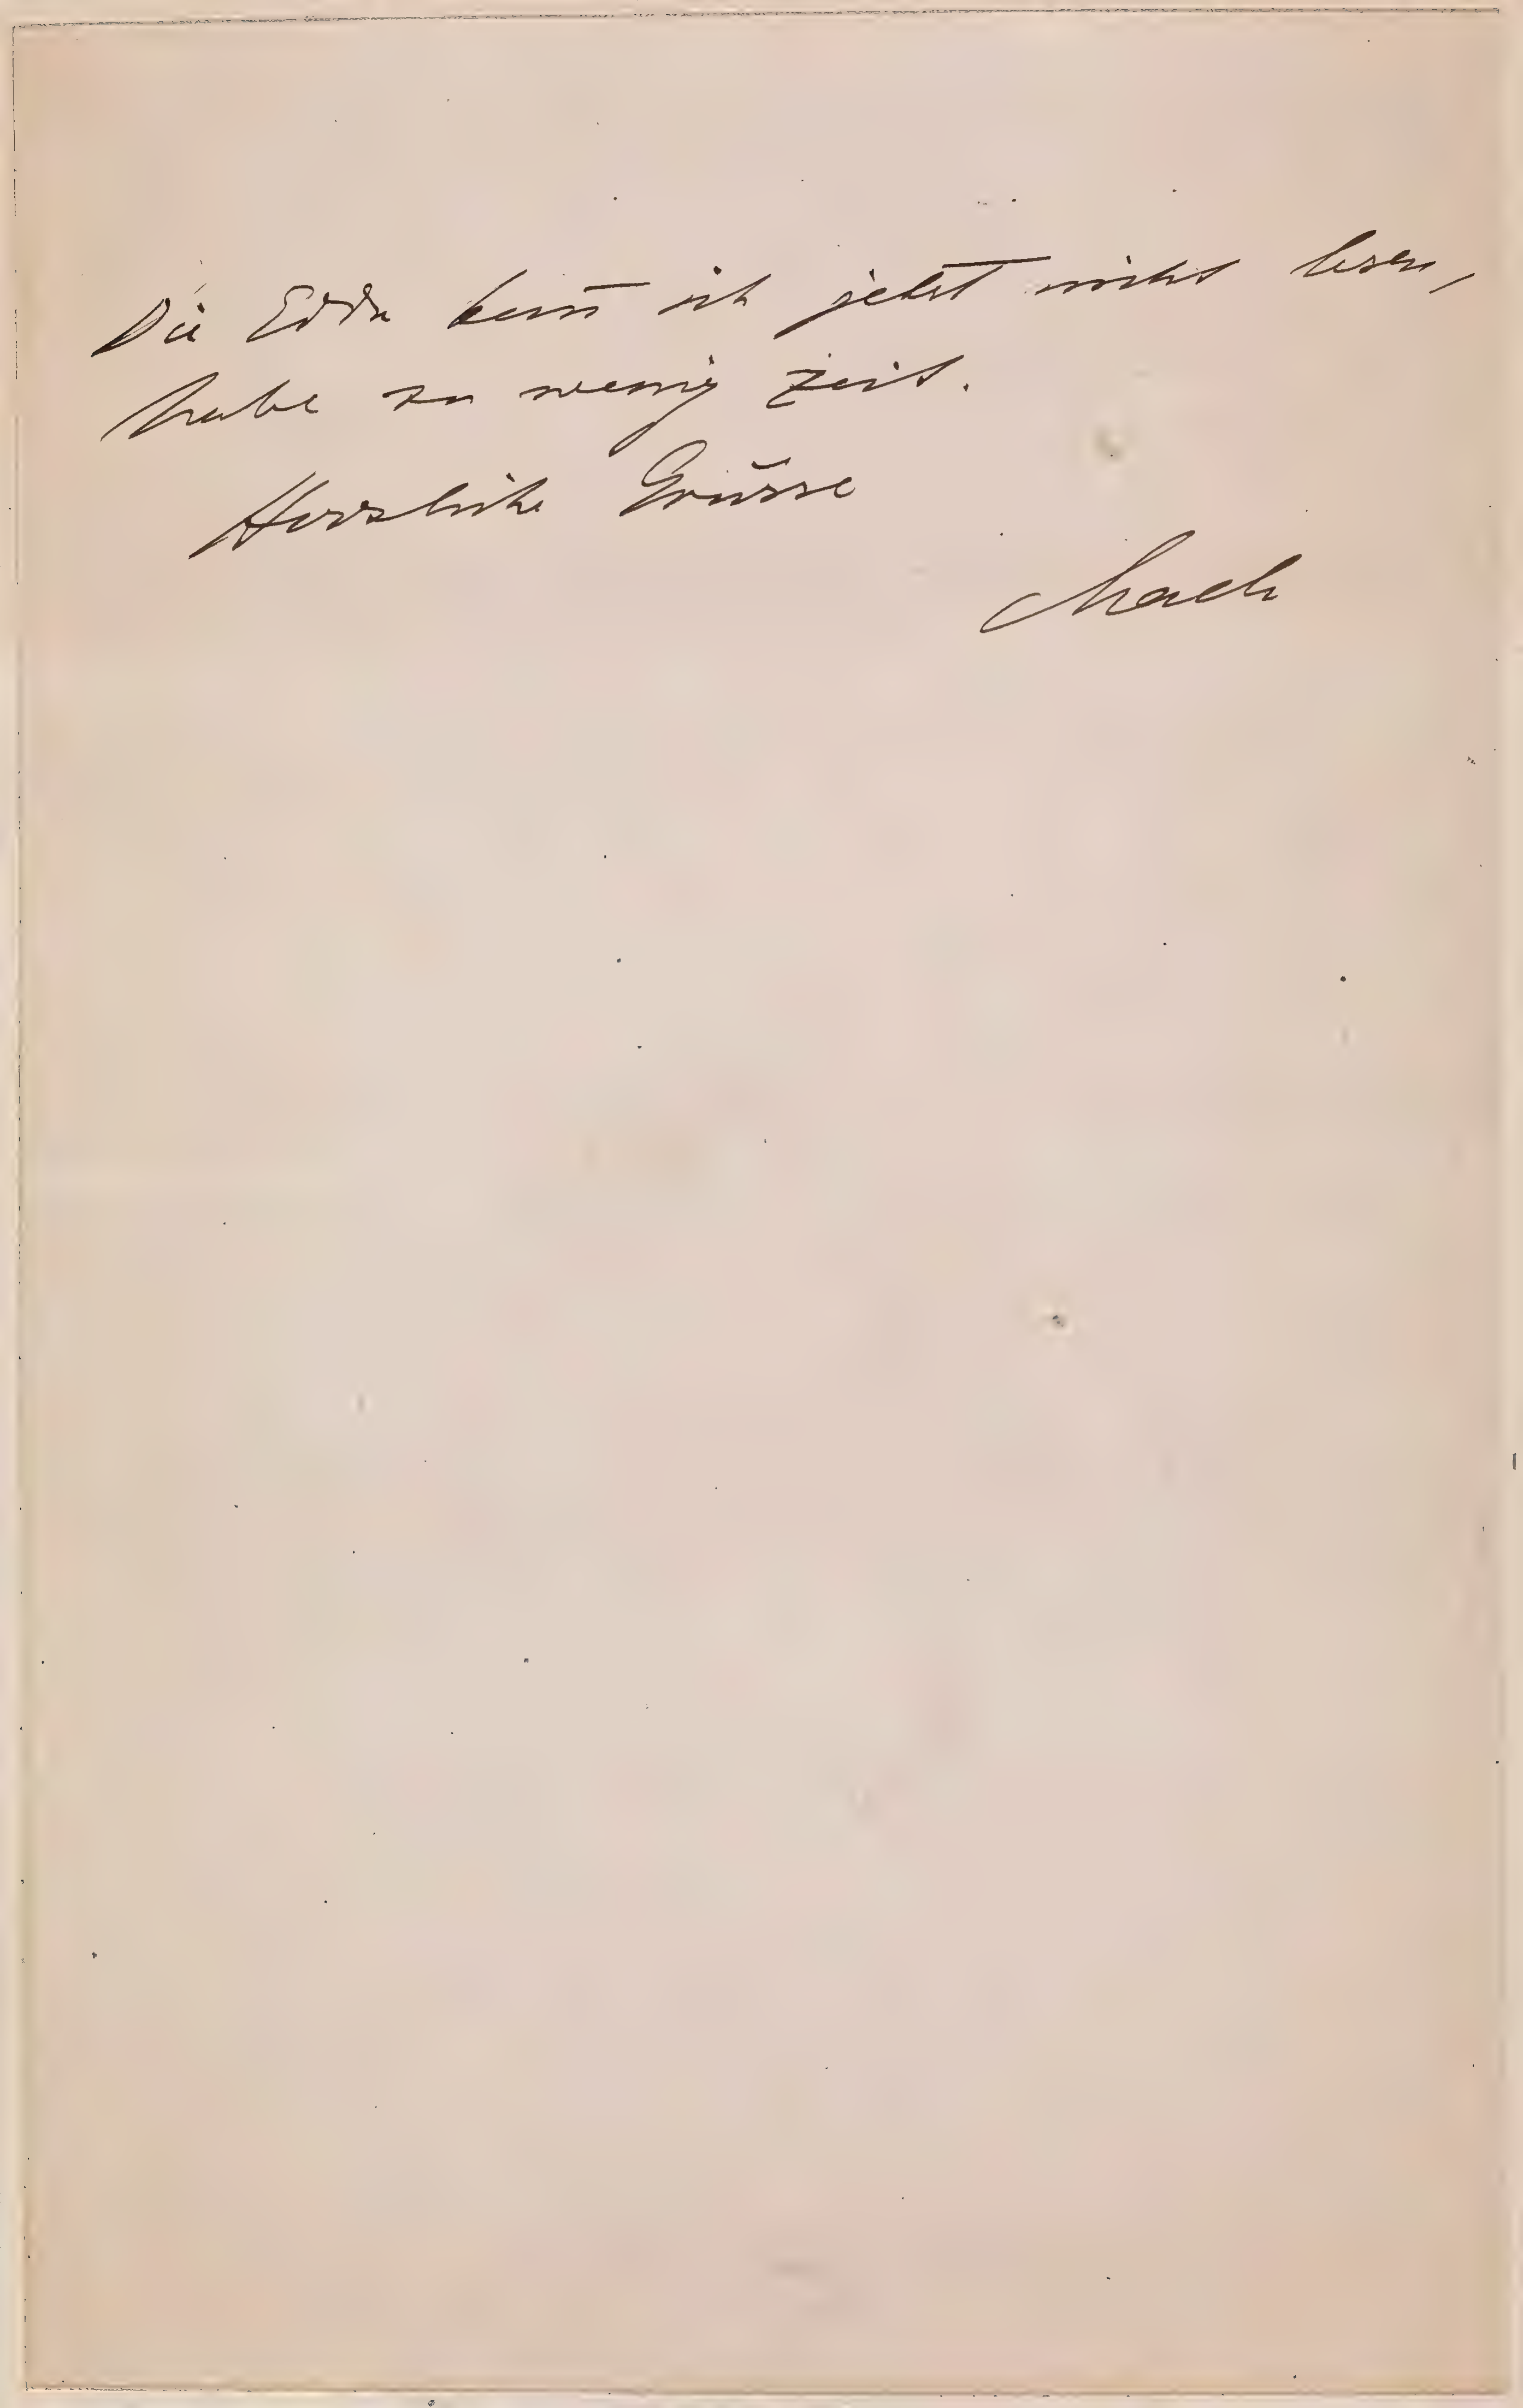 Die Edda kan̄ ich jetzt nicht lesen,
habe zu wenig Zeit.
Herzliche Grüsse
Mach